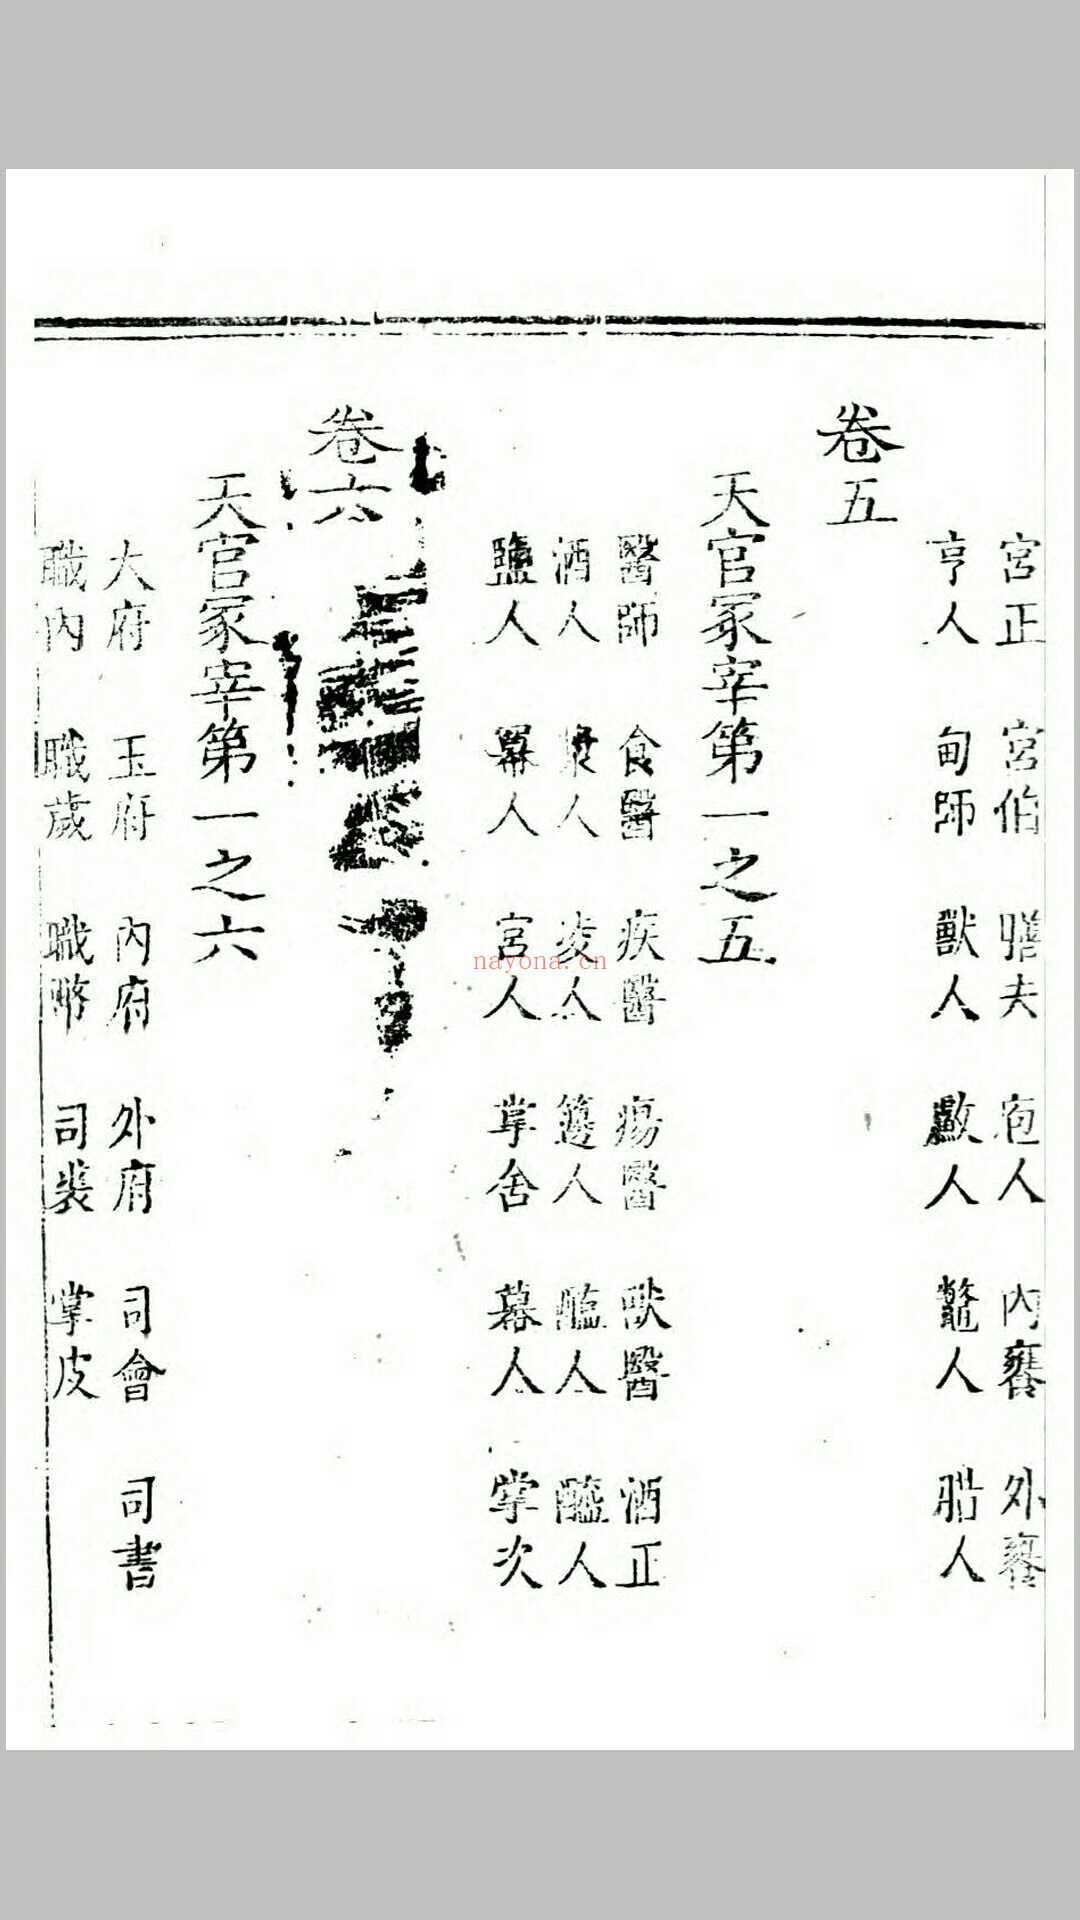 宮正 宮伯 膳夫 庖人 內饔 外饔
亨人 甸師 獸人 䱷人 鼈人 腊人
卷五
天官冢宰第一之五
醫師 食醫 疾醫 瘍醫 獸醫 酒正
酒人 漿人 凌人 籩人 醢人 醯人
鹽人 冪人 宮人 掌舍 幕人 掌次
卷六
天官冢宰第一之六
大府 玉府 內府 外府 司會 司書
職內 職歲 職幣 司裘 掌皮
nayona.cn